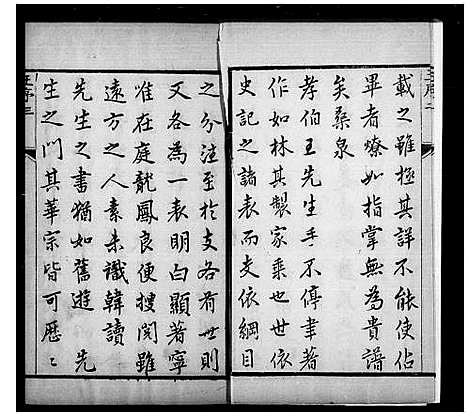 王序二
載之雖極其詳不能使佔
畢者燎如指掌無為貴譜
矣桑泉
孝伯王先生手不停聿著
作如林其製家乘也世依
史記之諸表而支依綱目
之分注至於支各有世則
又各為一表明白顯著寧
惟在庭龍鳳良便搜閱雖
遠方之人素未識韓讀
先生之書猶如舊遊 先
生之門其華宗皆可歷〻
王序三